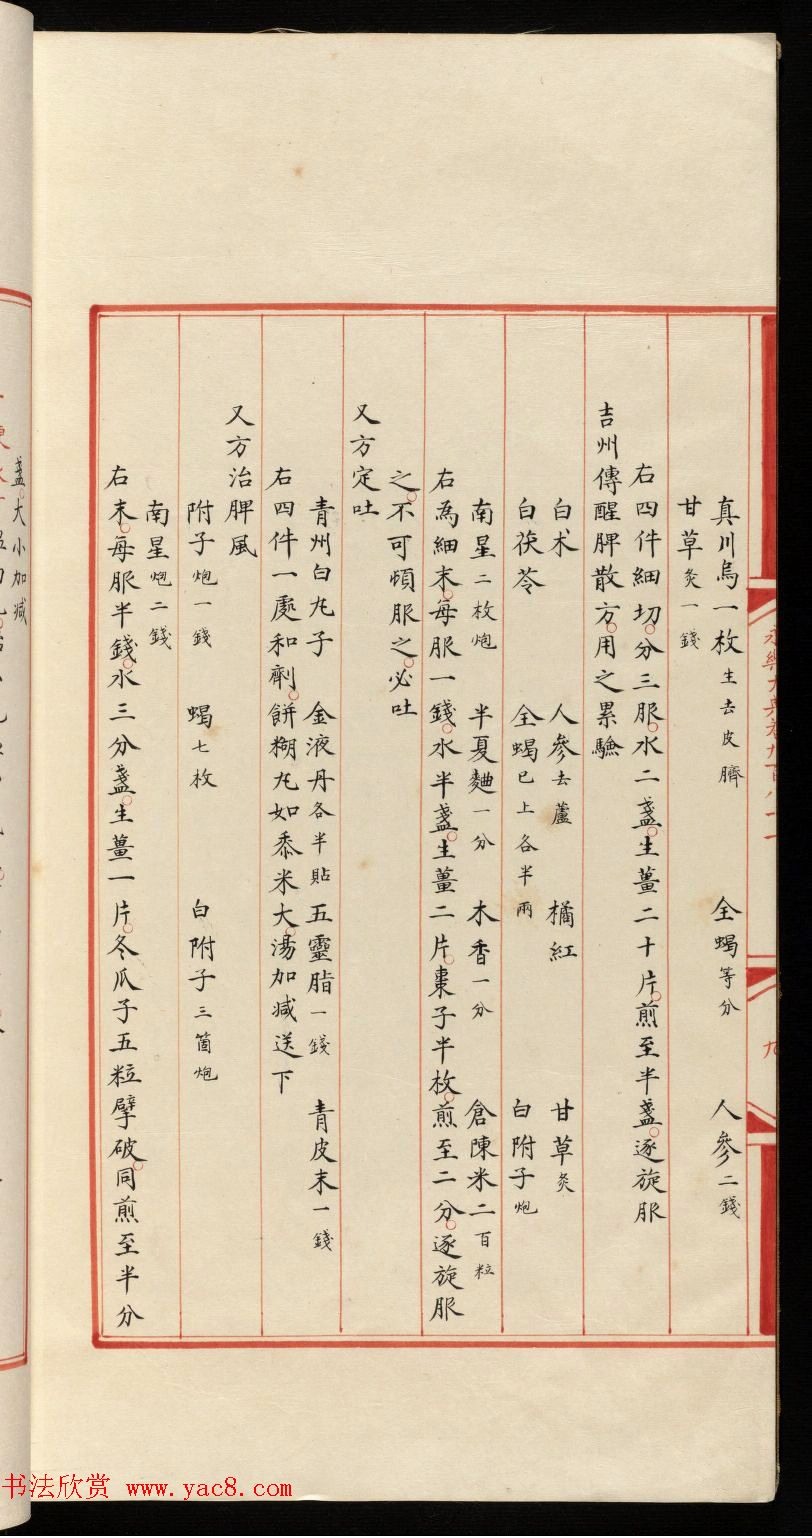 真川烏一枚生去皮臍 全蝎等分 人參二錢
甘草炙一錢
右四件細切分三服水二盞生薑二十片煎至半盞逐旋服
吉州傳醒脾散方用之累驗
白朮 人參去蘆 橘紅 甘草炙
白茯苓 全蝎已上各半兩 白附子炮
南星二枚炮 半夏麯一分 木香一分 倉陳米二百粒
右為細末每服一錢水半盞生薑二片棗子半枚煎至二分逐旋服
之不可頓服之必吐
又方定吐
青州白丸子 金液丹各半貼 五靈脂一錢 青皮末一錢
右四件一處和劑餅糊丸如黍米大湯加减送下
又方治脾風
附子炮一錢 蝎七枚 白附子三箇炮
南星炮二錢
右末每服半錢水三分盞生薑一片冬瓜子五粒擘破同煎至半分
盞大小加减
书法欣赏 www.yac8.com